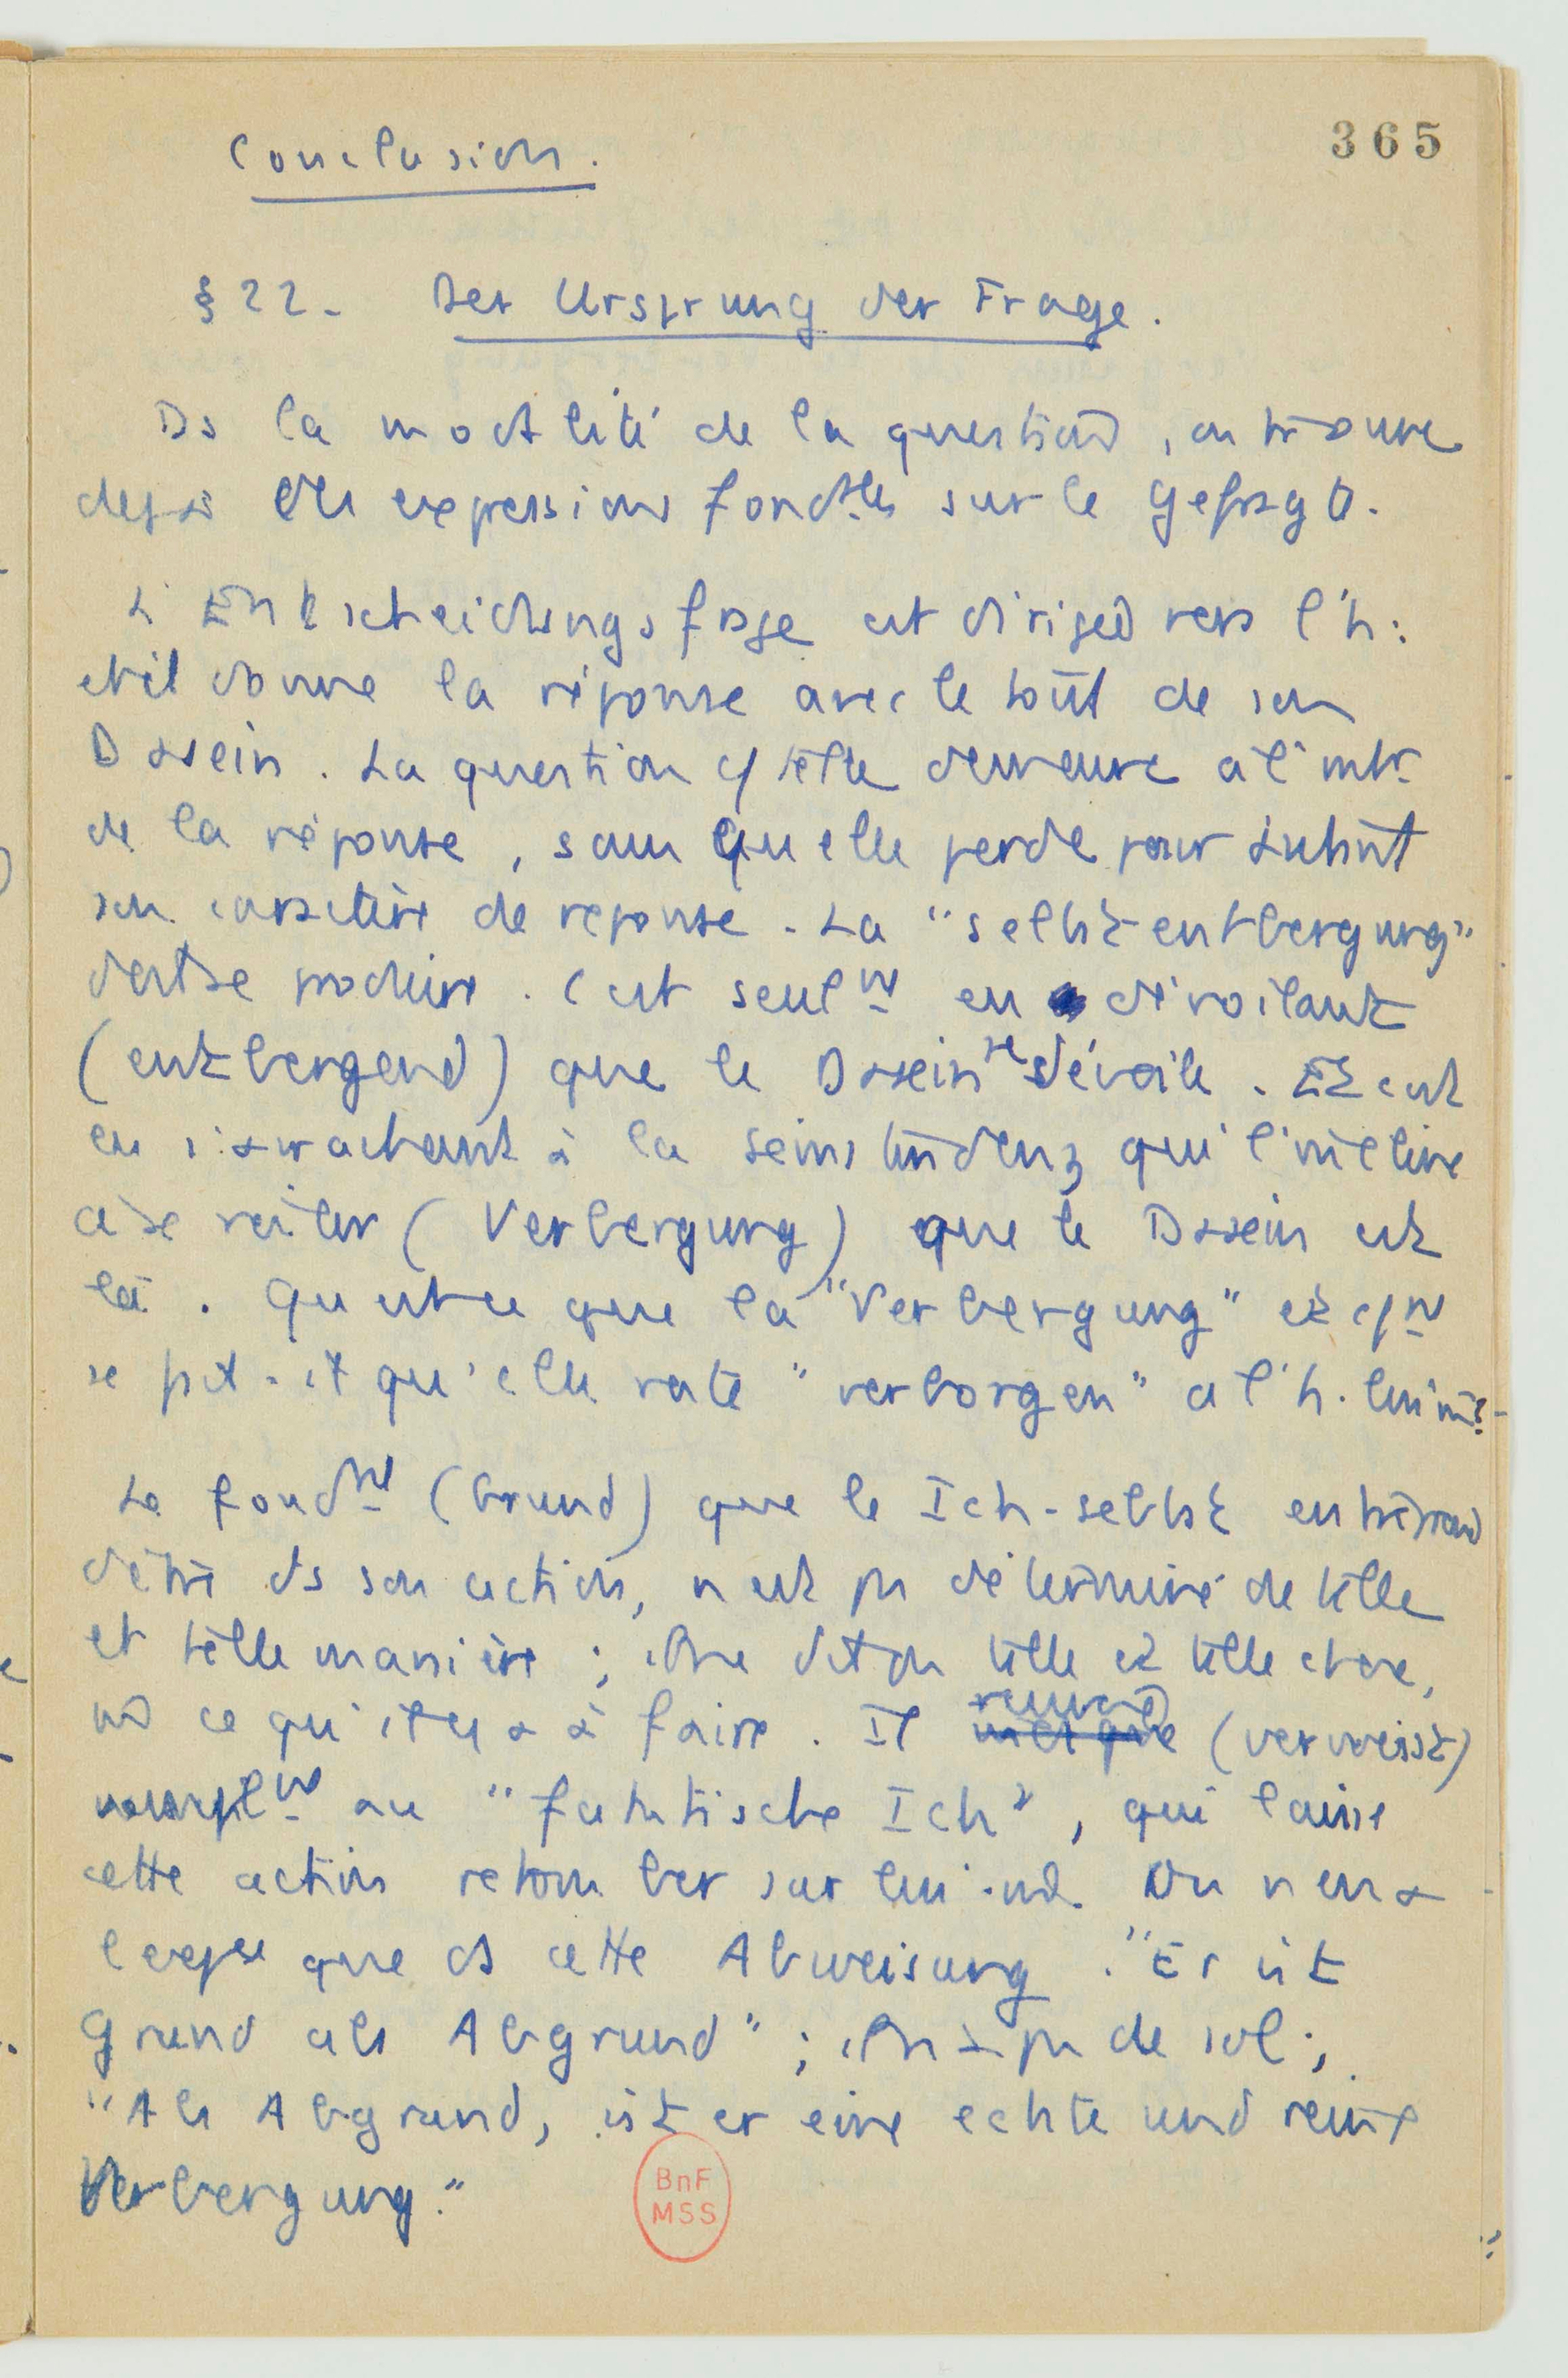 365
Conclusion.
§ 22. Der Ursprung der Frage.
Ds la modalité de la question, on trouve
déjà des expressions fondtles sur le Gefragte.
L'Entscheidungsfrage est dirigée vers l'h :
et il donne la réponse avec le tout de son
Dasein. La question c/ telle demeure à l'intr
de la réponse, sans qu'elle perde pour autant
son caractère de réponse. La "Selbstentbergung"
doit se produire. C'est seulnt en dévoilant
(entbergend) que le Dasein se dévoile. Et c'est
en s'arrachant à la Seinstendenz qui l'incline
à se voiler (Verbergung) que le Dasein est
là. Qu'est-ce que la "Verbergung" et c/nt
se fait-il qu'elle reste "verborgen" à l'h. lui m?
Le fondnt (Grund) que le Ich-selbst entreprend
d'être ds son action, n'est pas déterminé de telle
et telle manière ; il ne dit pas telle et telle chose,
ni ce qu'il y a à faire. Il renvoie (verweist)
au "faktische Ich", qui laisse
cette action retomber sur lui-m. On n'en a
que ds cette Abweisung. "Er ist
Grund als Abgrund" ; il n'a pas de sol ;
"Als Abgrund, ist er eine echte und reine
Verbergung."
BnF
MSS